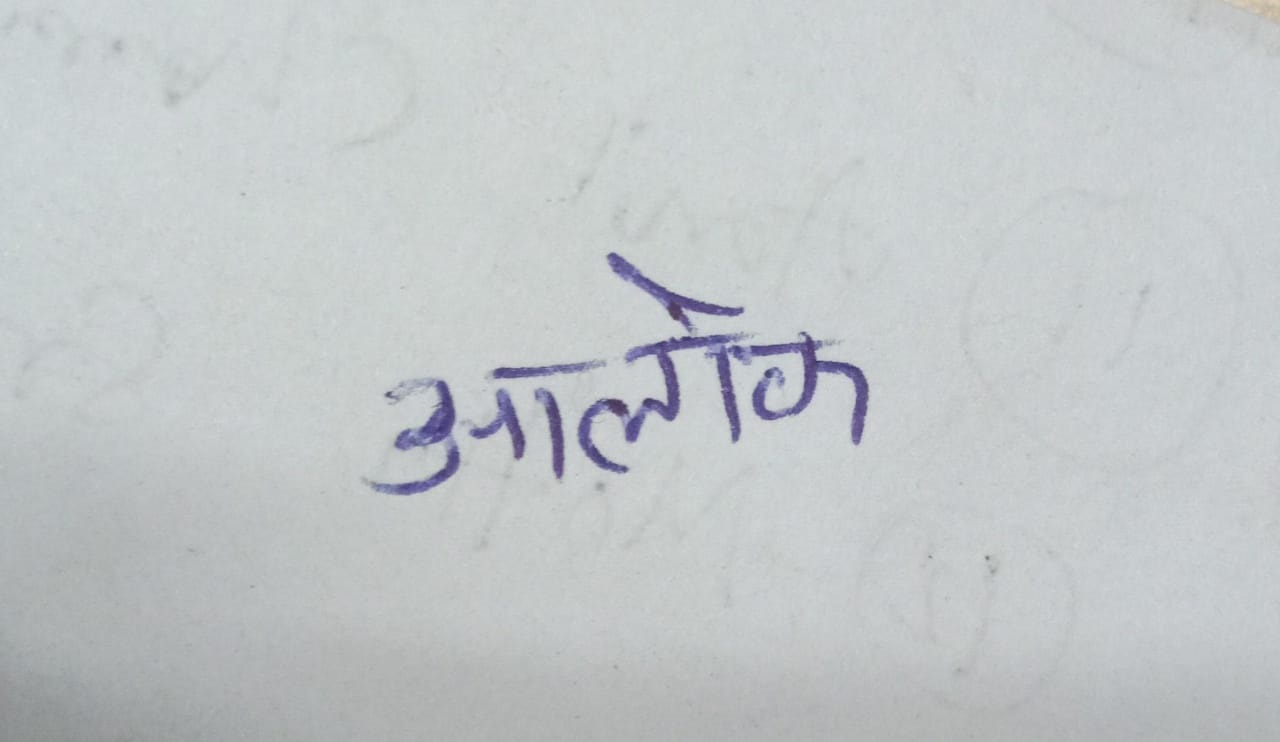 आलोक